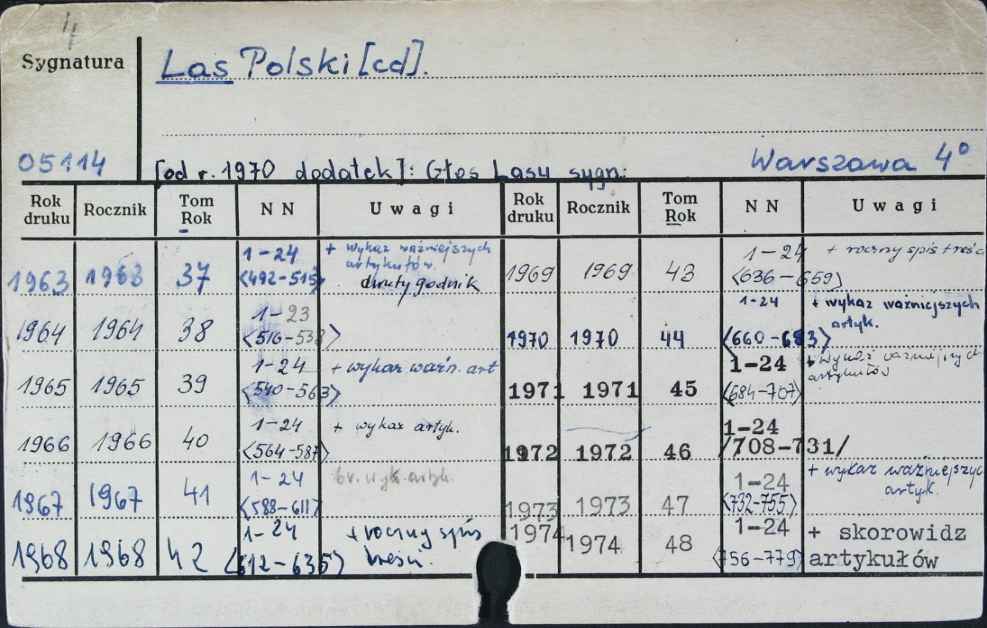 4
Sygnatura
Las Polski [cd].
05114
[od r. 1970 dodatek]: Głos Lasu sygn:
Warszawa 4°
Rok druku Rocznik Tom Rok NN Uwagi Rok druku Rocznik Tom Rok NN Uwagi
1963 1963 37 1-24 <492-515> + wykaz ważniejszych artykułów. dwutygodnik
1969 1969 43 1-24 <636-659> + roczny spis treści
1964 1964 38 1-23 <516-538>
1970 1970 44 1-24 <660-683> + wykaz ważniejszych artyk.
1965 1965 39 1-24 <540-563> + wykaz ważn. art
1971 1971 45 1-24 <684-707> + wykaz ważniejszych artykułów
1966 1966 40 1-24 <564-587> + wykaz artyk.
1972 1972 46 1-24 /708-731/
1967 1967 41 1-24 <588-611> br. wyk. artyk.
1973 1973 47 1-24 <732-755> + wykaz ważniejszyc artyk.
1968 1968 42 1-24 <612-635> + roczny spis treści.
1974 1974 48 1-24 <756-779> + skorowidz artykułów